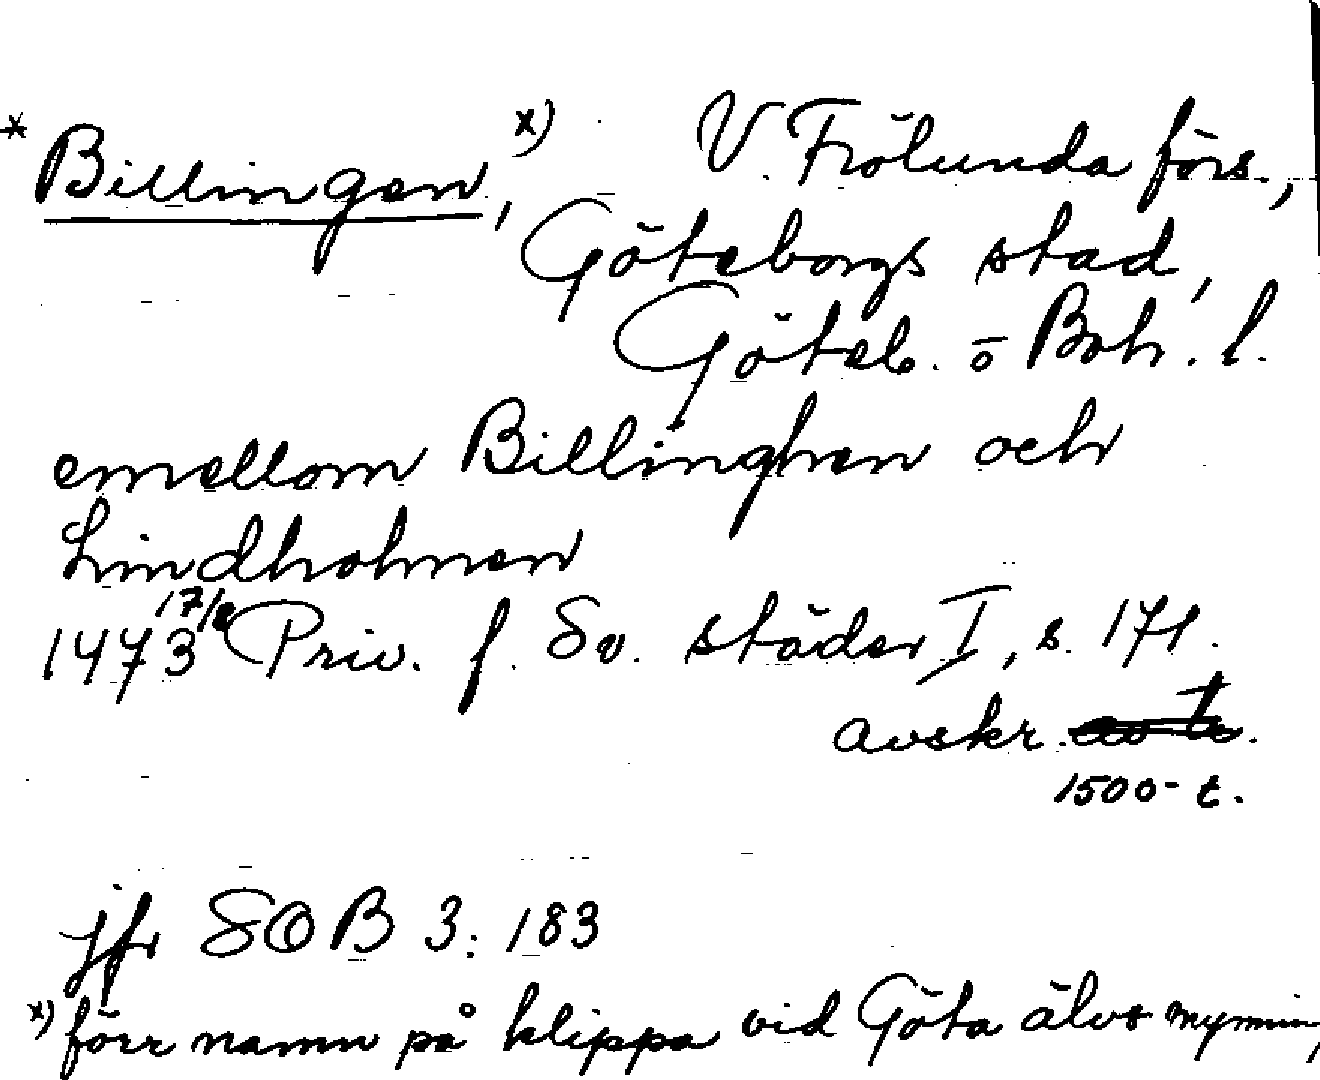 * Billingen, x) V. Frölunda förs.,
Göteborgs stad,
Göteb. o Boh. l.
emellom Billinghen och
Lindholmen
1473 17/8 Priv. f. Sv. städer I, s. 171.
avskr.
1500-t.
jfr SOB 3: 183
x) förr namn på klippa vid Göta älvs mynnin